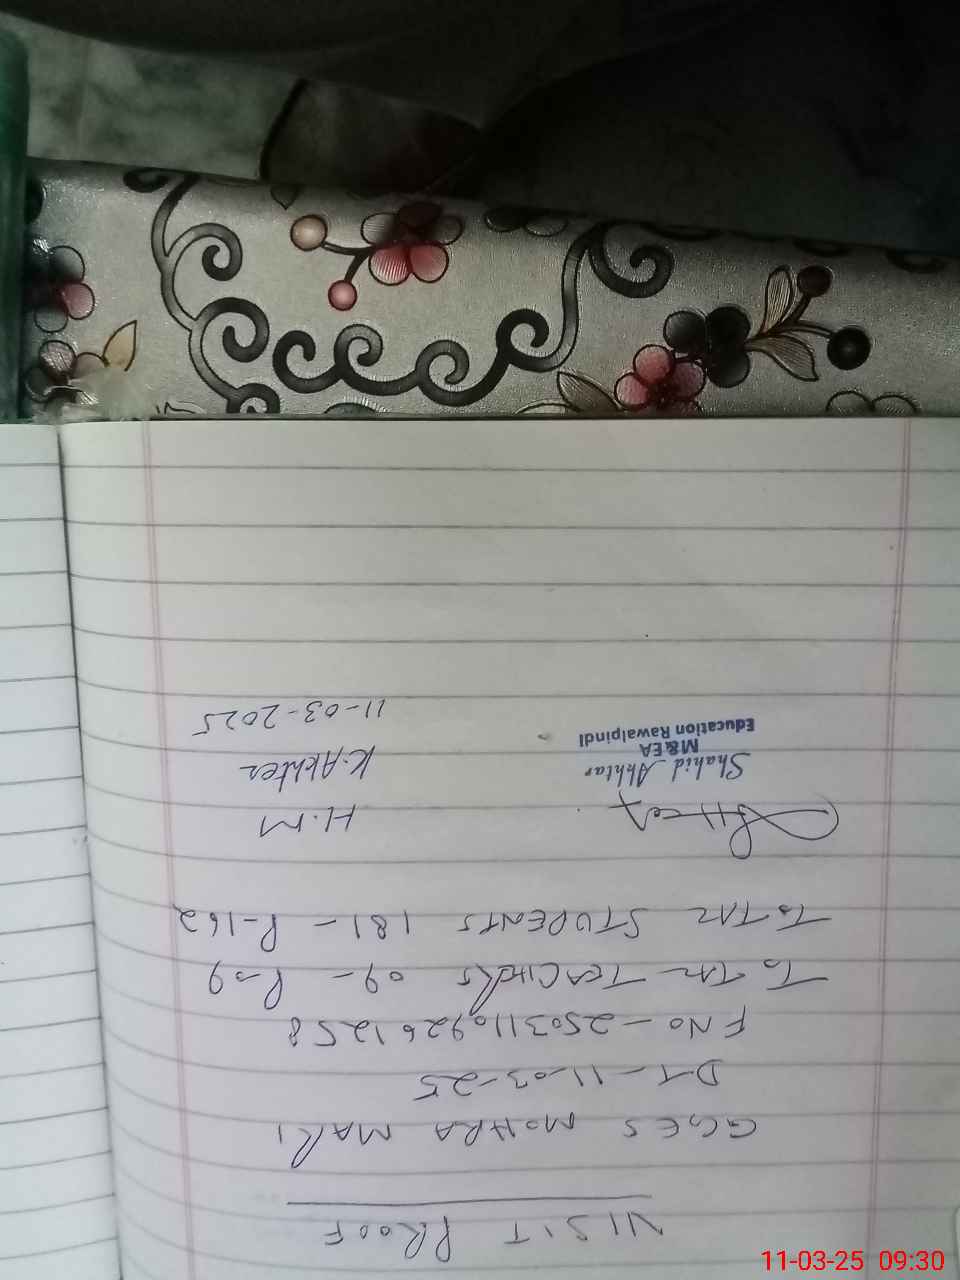 VISIT PROOF
GGES MOHRA MARI
DT - 11-03-25
F NO - 25031109261258
TOTAL TEACHERS 09 - P-09
TOTAL STUDENTS 181 - P-162
H.M
Shahid Akhtar
M&EA
Education Rawalpindi
K. Akhter
11-03-2025
11-03-25 09:30